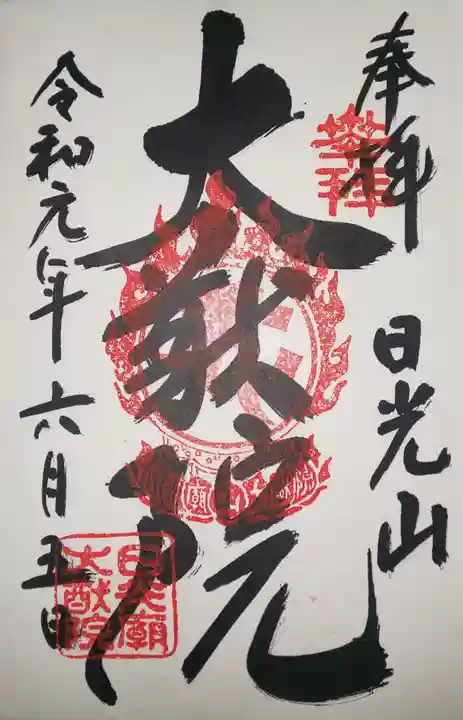 奉拝
日光山
大猷院
令和元年六月五日
奉拝
日光廟
大猷院